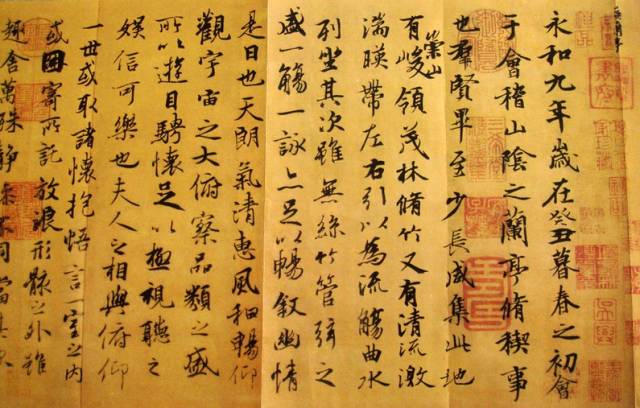 永和九年歲在癸丑暮春之初會
于會稽山陰之蘭亭脩稧事
也羣賢畢至少長咸集此地
有崇山峻領茂林脩竹又有清流激
湍暎帶左右引以為流觴曲水
列坐其次雖無絲竹管弦之
盛一觴一詠亦足以暢敘幽情
是日也天朗氣清惠風和暢仰
觀宇宙之大俯察品類之盛
所以遊目騁懷足以極視聽之
娛信可樂也夫人之相與俯仰
一世或取諸懷抱悟言一室之內
或因寄所託放浪形骸之外雖
趣舍萬殊靜躁不同當其